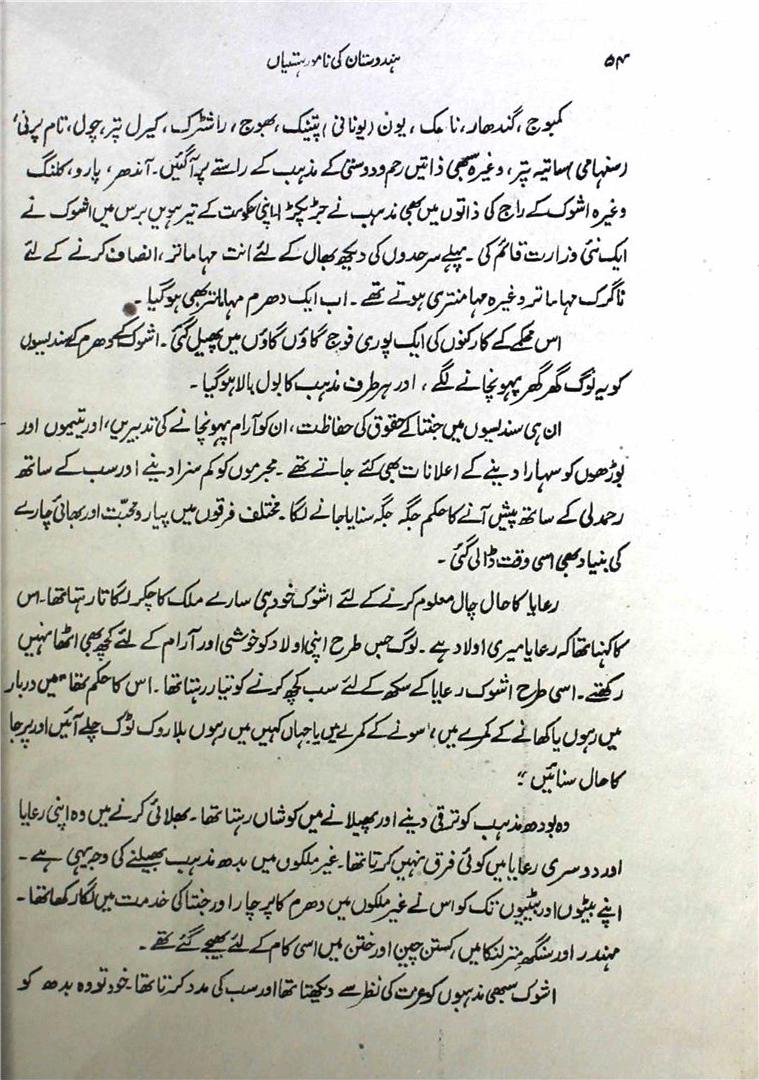 ۵۴ ہندوستان کی نامور ہستیاں
کمبوج، گندھار، نابک، یون (یونانی) پتینک، بھوج، راشٹرک، کیرل پتر، چول، تام پرنی،
(سنہامی) ساتیہ پتر، وغیرہ سبھی ذاتیں رحم و دوستی کے مذہب کے راستے پر آگئیں۔ آندھر، پارو، کلنگ
وغیرہ اشوک کے راج کی ذاتوں میں بھی مذہب نے جڑ پکڑا اپنی حکومت کے تیرہویں برس میں اشوک نے
ایک نئی وزارت قائم کی۔ پہلے سرحدوں کی دیکھ بھال کے لئے انت مہاماتر، انصاف کرنے کے لئے
ناگرک مہاماتر وغیرہ مہامنتری ہوتے تھے۔ اب ایک دھرم مہاماتر بھی ہوگیا۔
اس محکمے کے کارکنوں کی ایک پوری فوج گاؤں گاؤں میں پھیل گئی۔ اشوک کے دھرم کے سندیسوں
کو یہ لوگ گھر گھر پہونچانے لگے، اور ہر طرف مذہب کا بول بالا ہوگیا۔
ان ہی سندیسوں میں جنتا کے حقوق کی حفاظت، ان کو آرام پہونچانے کی تدبیریں، اور یتیموں اور
بوڑھوں کو سہارا دینے کے اعلانات بھی کئے جاتے تھے۔ مجرموں کو کم سزا دینے اور سب کے ساتھ
رحمدلی کے ساتھ پیش آنے کا حکم جگہ جگہ سنایا جانے لگا۔ مختلف فرقوں میں پیار و محبّت اور بھائی چارے
کی بنیاد بھی اسی وقت ڈالی گئی۔
رعایا کا حال چال معلوم کرنے کے لئے اشوک خود ہی سارے ملک کا چکر لگاتا رہتا تھا۔ اس
کا کہنا تھا کہ رعایا میری اولاد ہے۔ لوگ جس طرح اپنی اولاد کو خوشی اور آرام کے لئے کچھ بھی اٹھا نہیں
رکھتے۔ اسی طرح اشوک رعایا کے سکھ کے لئے سب کچھ کرنے کو تیار رہتا تھا۔ اس کا حکم تھا "میں دربار
میں رہوں یا کھانے کے کمرے میں، سونے کے کمرے میں یا جہاں کہیں میں رہوں بلا روک ٹوک چلے آئیں اور پرجا
کا حال سنائیں"
وہ بودھ مذہب کو ترقی دینے اور پھیلانے میں کوشاں رہتا تھا۔ بھلائی کرنے میں وہ اپنی رعایا
اور دوسری رعایا میں کوئی فرق نہیں کرتا تھا۔ غیر ملکوں میں بدھ مذہب پھیلنے کی وجہ یہی ہے۔
اپنے بیٹوں اور بیٹیوں تک کو اس نے غیر ملکوں میں دھرم کا پرچار اور جنتا کی خدمت میں لگا رکھا تھا۔
مہندر اور سنگھ متر لنکا میں، کستن چین اور ختن میں اسی کام کے لئے بھیجے گئے تھے۔
اشوک سبھی مذہبوں کو عزت کی نظر سے دیکھتا تھا اور سب کی مدد کرتا تھا۔ خود تو وہ بدھ کو